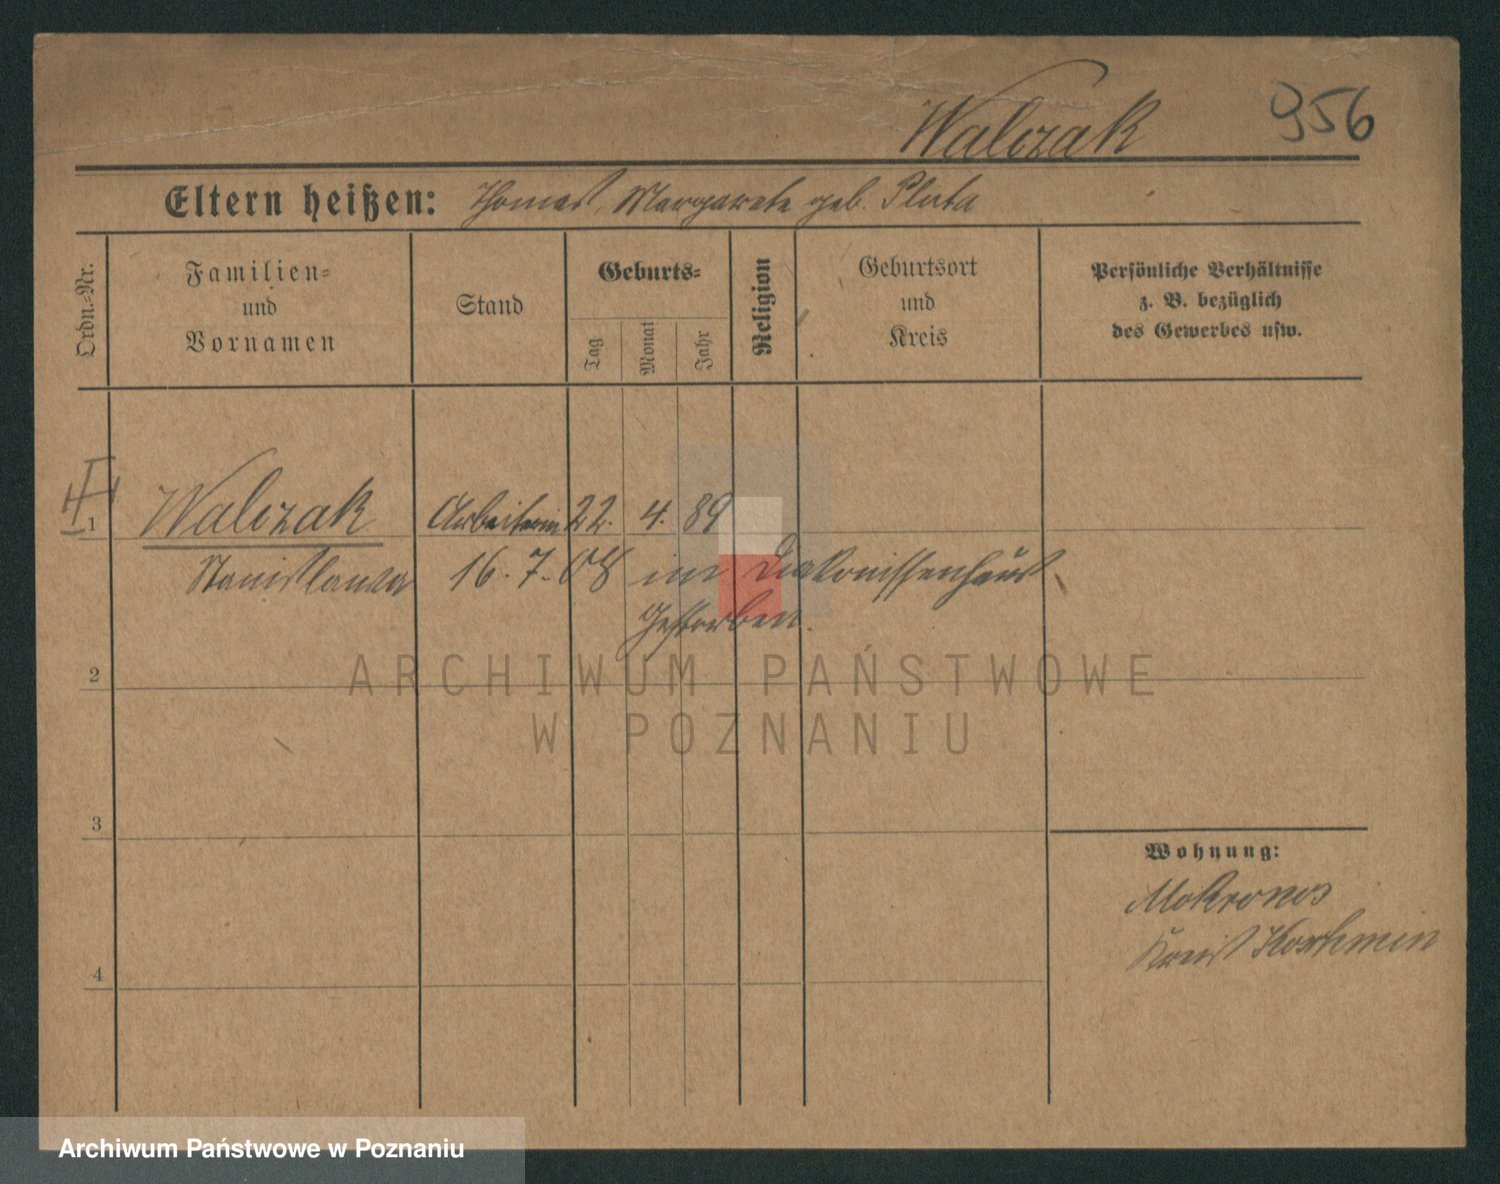 Walczak
956
Eltern heißen: Thomas, Margarete geb. Pluta
Ordn.-Nr.
Familien-
und
Vornamen
Stand
Geburts-
Tag
Monat
Jahr
Religion
Geburtsort
und
Kreis
Persönliche Verhältnisse
z. B. bezüglich
des Gewerbes usw.
1 Walczak Arbeiterin 22. 4. 89
Stanislawa 16. 7. 08 im Diakonissenhaus
gestorben.
2
ARCHIWUM PAŃSTWOWE
W POZNANIU
3
Wohnung:
Mokronos
Kreis Koschmin
4
Archiwum Państwowe w Poznaniu